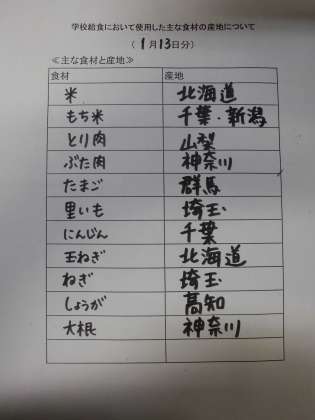 学校給食において使用した主な食材の産地について
（ 1月13日分）
≪主な食材と産地≫
食材 産地
米 北海道
もち米 千葉・新潟
とり肉 山梨
ぶた肉 神奈川
たまご 群馬
里いも 埼玉
にんじん 千葉
玉ねぎ 北海道
ねぎ 埼玉
しょうが 高知
大根 神奈川